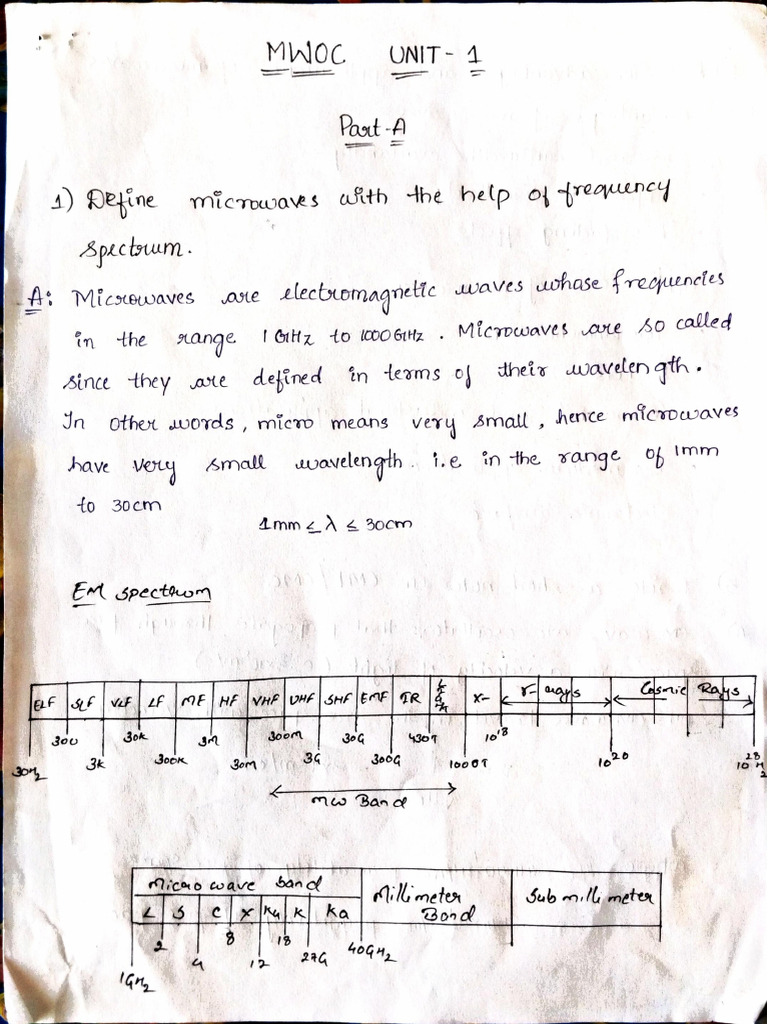 MWOC UNIT - 1
Part-A
1) Define microwaves with the help of frequency
spectrum.
A: Microwaves are electromagnetic waves whose frequencies
in the range 1 GHz to 1000 GHz. Microwaves are so called
since they are defined in terms of their wavelength.
In other words, micro means very small, hence microwaves
have very small wavelength. i.e in the range of 1mm
to 30cm
1mm ≤ λ ≤ 30cm
EM spectrum
ELF SLF VLF LF MF HF VHF UHF SHF EMF IR X- r-rays Cosmic Rays
300 30k 3M 300M 30G 430T 10^18
30Hz 3k 300k 30M 3G 300G 1000T 10^20 10^28 Hz
MW Band
Microwave band Millimeter Band Sub millimeter
L S C X Ku K Ka
2 8 18
4 12 27G 40GHz
1GHz